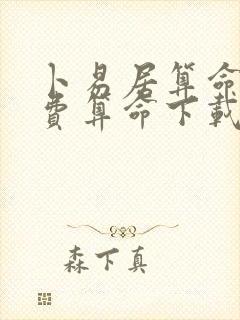 卜易居算命
費算命下載
森下真